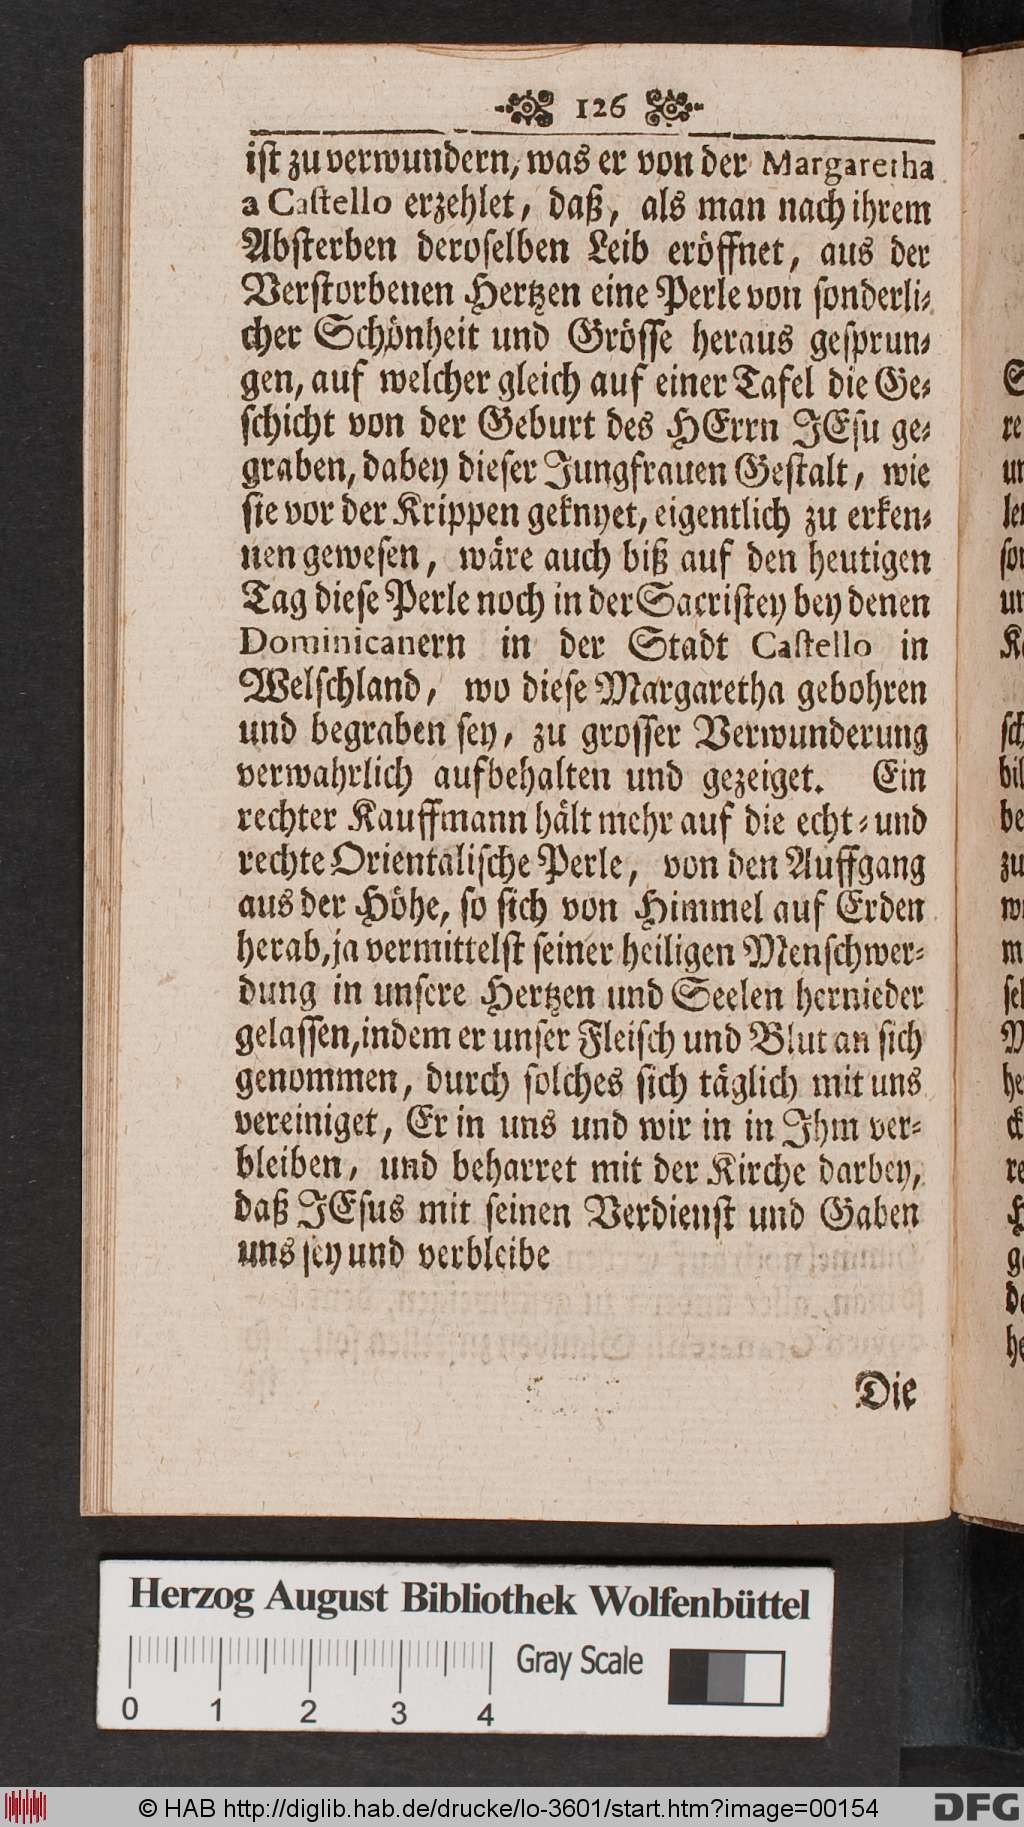 126
ist zu verwundern, was er von der Margaretha
a Castello erzehlet, daß, als man nach ihrem
Absterben deroselben Leib eröffnet, aus der
Verstorbenen Hertzen eine Perle von sonderli-
cher Schönheit und Grösse heraus gesprun-
gen, auf welcher gleich auf einer Tafel die Ge-
schicht von der Geburt des HErrn JEsu ge-
graben, dabey dieser Jungfrauen Gestalt, wie
sie vor der Krippen geknyet, eigentlich zu erken-
nen gewesen, wäre auch biß auf den heutigen
Tag diese Perle noch in der Sacristey bey denen
Dominicanern in der Stadt Castello in
Welschland, wo diese Margaretha gebohren
und begraben sey, zu grosser Verwunderung
verwahrlich aufbehalten und gezeiget. Ein
rechter Kauffmann hält mehr auf die echt- und
rechte Orientalische Perle, von den Auffgang
aus der Höhe, so sich von Himmel auf Erden
herab, ja vermittelst seiner heiligen Menschwer-
dung in unsere Hertzen und Seelen hernieder
gelassen, indem er unser Fleisch und Blut an sich
genommen, durch solches sich täglich mit uns
vereiniget, Er in uns und wir in in Jhm ver-
bleiben, und beharret mit der Kirche darbey,
daß JEsus mit seinen Verdienst und Gaben
uns sey und verbleibe
Die
Herzog August Bibliothek Wolfenbüttel
Gray Scale
0 1 2 3 4
© HAB http://diglib.hab.de/drucke/lo-3601/start.htm?image=00154
DFG